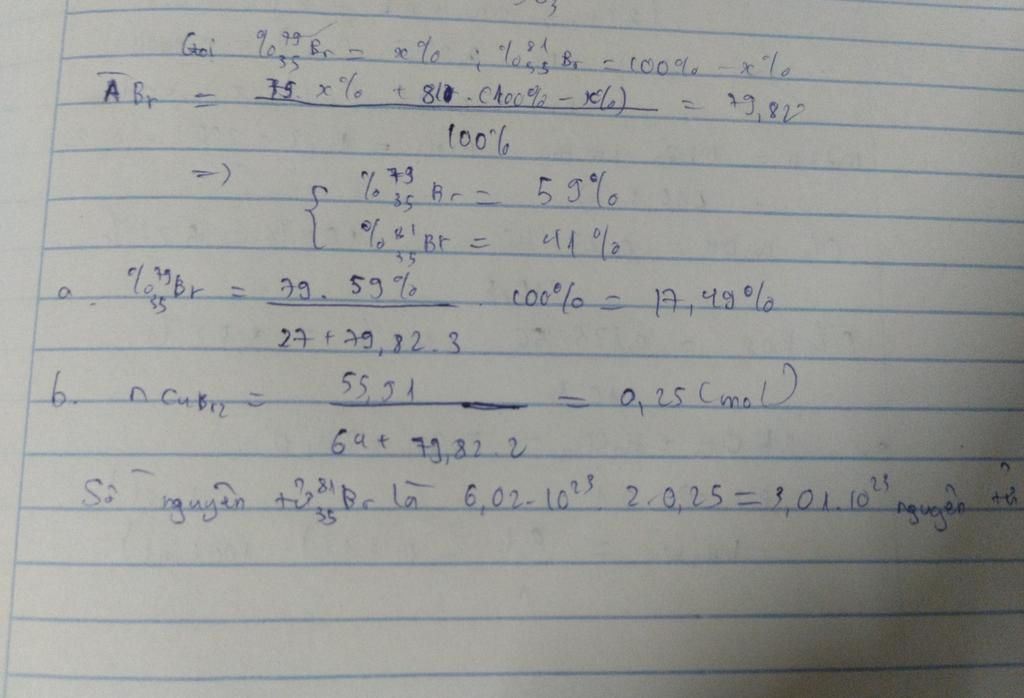 Gọi %⁷⁹₃₅Br = x% ; %⁸¹₃₅Br = 100% - x%
Ā Br = 79. x% + 81. (100% - x%) / 100% = 79,82
=> { %⁷⁹₃₅Br = 59%
%⁸¹₃₅Br = 41%
a. %⁷⁹₃₅Br = 79. 59% / 27 + 79,82.3 . 100% = 17,49%
b. n CuBr₂ = 55,91 / 64 + 79,82.2 = 0,25 (mol)
Số nguyên tử ⁸¹₃₅Br là 6,02.10²³. 2.0,25 = 3,01.10²³ nguyên tử